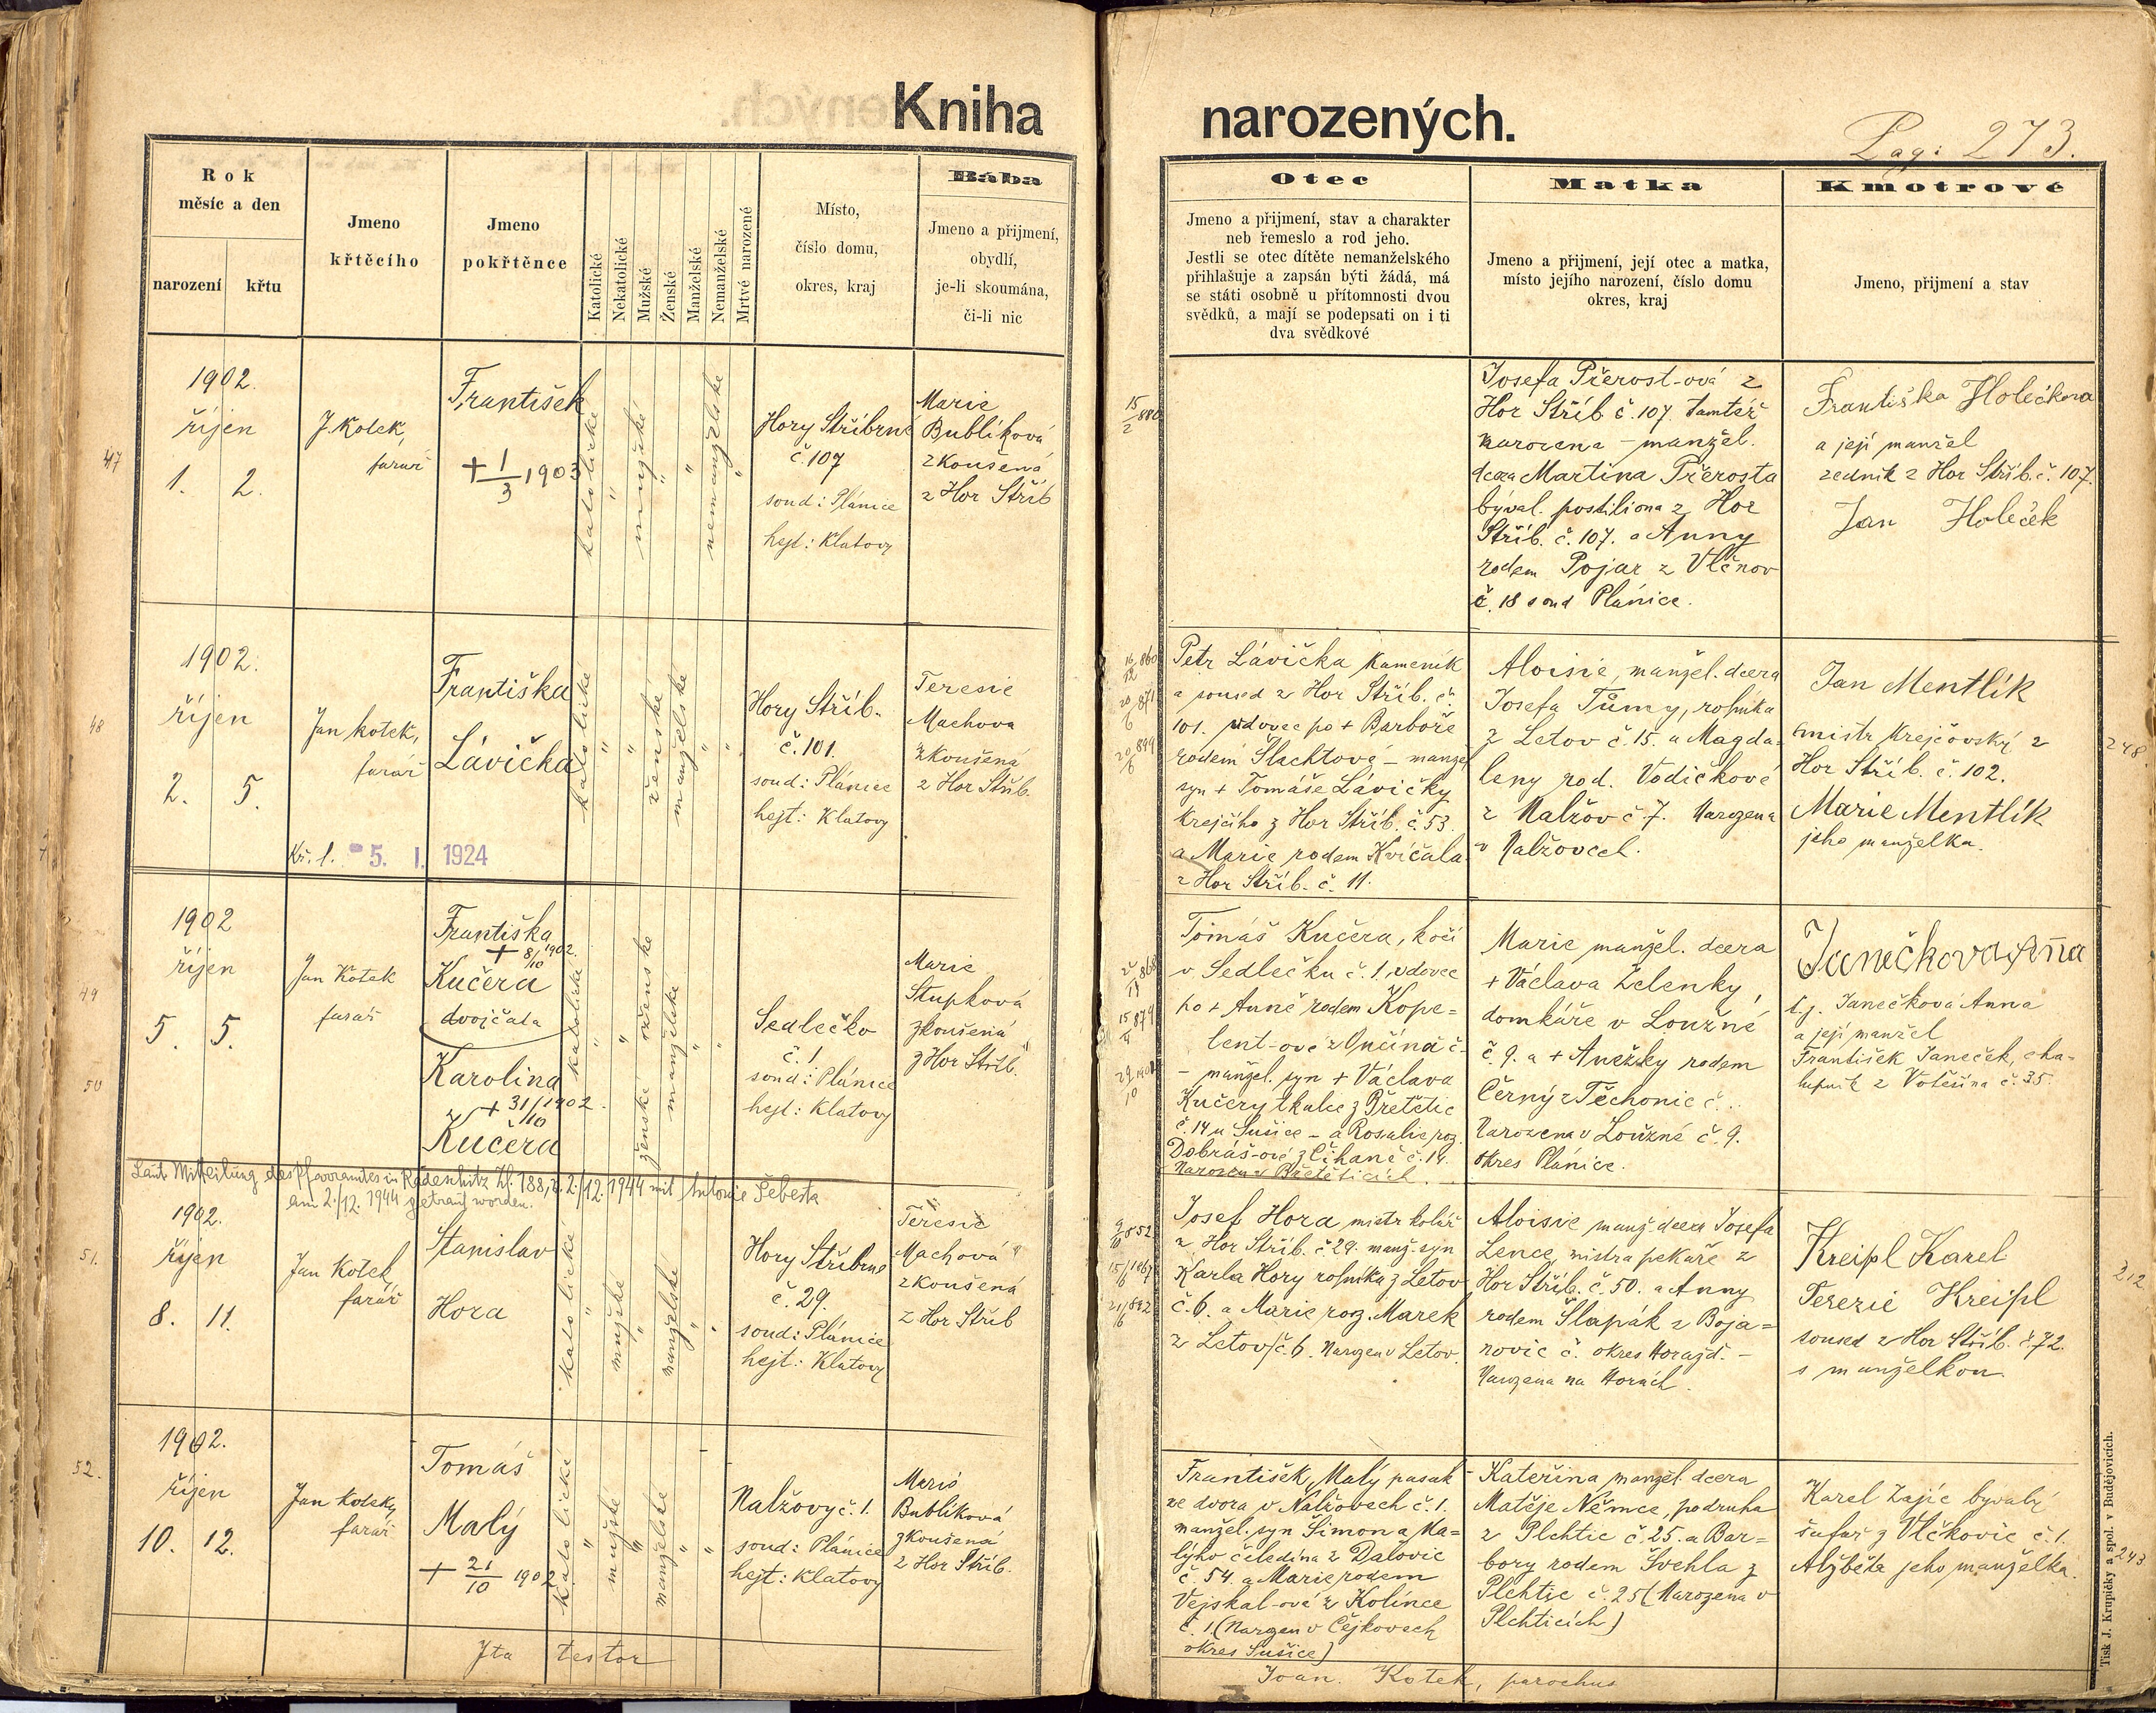 Kniha
narozených.
Pag: 273.
Rok
měsíc a den
narození
křtu
Jmeno
křtěcího
Jmeno
pokřtěnce
Katolické
Nekatolické
Mužské
Ženské
Manželské
Nemanželské
Mrtvé narozené
Místo,
číslo domu,
okres, kraj
Bába
Jmeno a přijmení,
obydlí,
je-li skoumána,
či-li nic
Otec
Jmeno a přijmení, stav a charakter
neb řemeslo a rod jeho.
Jestli se otec dítěte nemanželského
přihlašuje a zapsán býti žádá, má
se státi osobně u přítomnosti dvou
svědků, a mají se podepsati on i ti
dva svědkové
Matka
Jmeno a přijmení, její otec a matka,
místo jejího narození, číslo domu
okres, kraj
Kmotrové
Jmeno, přijmení a stav
47
1902.
říjen
1. 2.
J. Kotek,
farář
František
+ 1/3 1903
katolické
"
mužské
"
"
nemanželske
"
Hory Stříbrné
č. 107
soud: Plánice
hejt: Klatovy
Marie
Bublíková
zkoušená
z Hor Stříb
15/2 880
Josefa Přerost-ová z
Hor Stříb. č. 107. tamtéž
narozena – manžel.
dcera Martina Přerosta
býval. postiliona z Hor
Stříb. č. 107. a Anny
rodem Pojar z Vlčnov
č. 18 soud Plánice.
Františka Holečkova
a její manžel
zedník z Hor Stříb. č. 107.
Jan Holeček
48
1902.
říjen
2. 5.
Jan Kotek,
farář
Kř. l. 5. I. 1924
Františka
Lávička
katolické
"
"
ženské
manželske
"
"
Hory Stříb.
č. 101.
soud: Plánice
hejt: Klatovy
Teresie
Machova
zkoušená
z Hor Stříb.
16/12 860
20/6 871
20/6 899
Petr Lávička kameník
a soused z Hor Stříb. č.
101. vdovec po + Barboře
rodem Šlachtová – manžel
syn + Tomáše Lávičky
krejčího z Hor Stříb. č. 53.
a Marie rodem Kvíčala
z Hor Stříb. č. 11.
Aloisie, manžel. dcera
Josefa Tůmy, rolníka
z Letov č. 15. a Magda-
leny rod. Vodičkové
z Nalžov č. 7. Narozena
v Nalžovech.
Jan Mentlík
mistr krejčovský z
Hor Stříb. č. 102.
Marie Mentlík
jeho manželka.
248.
49
50
1902
říjen
5. 5.
Jan Kotek
farář
Františka
+ 8/10 1902.
Kučera
dvojčata
Karolina
+ 31/10 1902.
Kučera
katolické
"
"
ženské
ženské
manželské
"
"
Sedlečko
č. 1
soud: Plánice
hejt: Klatovy
Marie
Stupková
zkoušená
z Hor Stříb.
Tomáš Kučera, kočí
v Sedlečku č. 1, vdovec
po + Anně rodem Kope=
lent-ové z Ončína č.
– manžel. syn + Václava
Kučery tkalce z Břetětic
č. 14 u Sušice – a Rosalie roz.
Dobráš-ové z Číhaně č. 14.
Narozen v Břetěticích.
Marie manžel. dcera
+ Václava Zelenky,
domkáře v Loužné
č. 9. a + Anežky rodem
Černý z Těchonic č...
Narozena v Loužné č. 9.
okres Plánice.
Janečkova Aña
t. j. Janečková Anna
a její manžel
František Janeček, cha-
lupník z Votěšína č. 35.
Laut Mitteilung des Pfarramtes in Radeschitz Zl. 188, v. 2./12. 1944 mit Antonie Šebesta
am 2./12. 1944 getraut worden.
51.
1902.
říjen
8. 11.
Jan Kotek,
farář
Stanislav
Hora
katolické
"
mužske
"
manželské
"
"
Hory Stříbrné
č. 29.
soud: Plánice
hejt: Klatovy
Teresie
Machová
zkoušená
z Hor Stříb
Josef Hora mistr kolář
z Hor Stříb. č. 29. manž. syn
Karla Hory rolníka z Letov
č. 6. a Marie roz. Marek
z Letov č. 6. Narozen v Letov.
Aloisie manž. dcera Josefa
Lence, mistra pekaře z
Hor Stříb. č. 50. a Anny
rodem Šlapák z Boja=
novic č. okres Horažď. –
Narozena na Horách.
Kreipl Karel
Terezie Kreipl
soused z Hor Stříb. č. 72.
s manželkou.
212
52.
1902.
říjen
10. 12.
Jan Kotek,
farář
Tomáš
Malý
+ 21/10 1902
katolické
"
mužské
"
manželske
"
"
Nalžovy č. 1.
soud: Plánice
hejt: Klatovy
Marie
Bublíková
zkoušená
z Hor Stříb.
František Malý pasák
ze dvora v Nalžovech č. 1.
manžel. syn Šimona Ma=
lýho čeledína z Dalovic
č. 54. a Marie rodem
Vejskal-ová z Kolince
č. 1. (Narozen v Čejkovech
okres Sušice)
Kateřina manžel. dcera
Matěje Němce, podruha
z Plchtic č. 25. a Bar=
bory rodem Švehla z
Plchtic č. 25 (Narozena v
Plchticích)
Karel Zajíc bývalý
šafář z Vlčkovic č. 1.
Alžběta jeho manželka.
243
Ita testor
Joan. Kotek, parochus
Tisk J. Krupičky a spol. v Budějovicích.